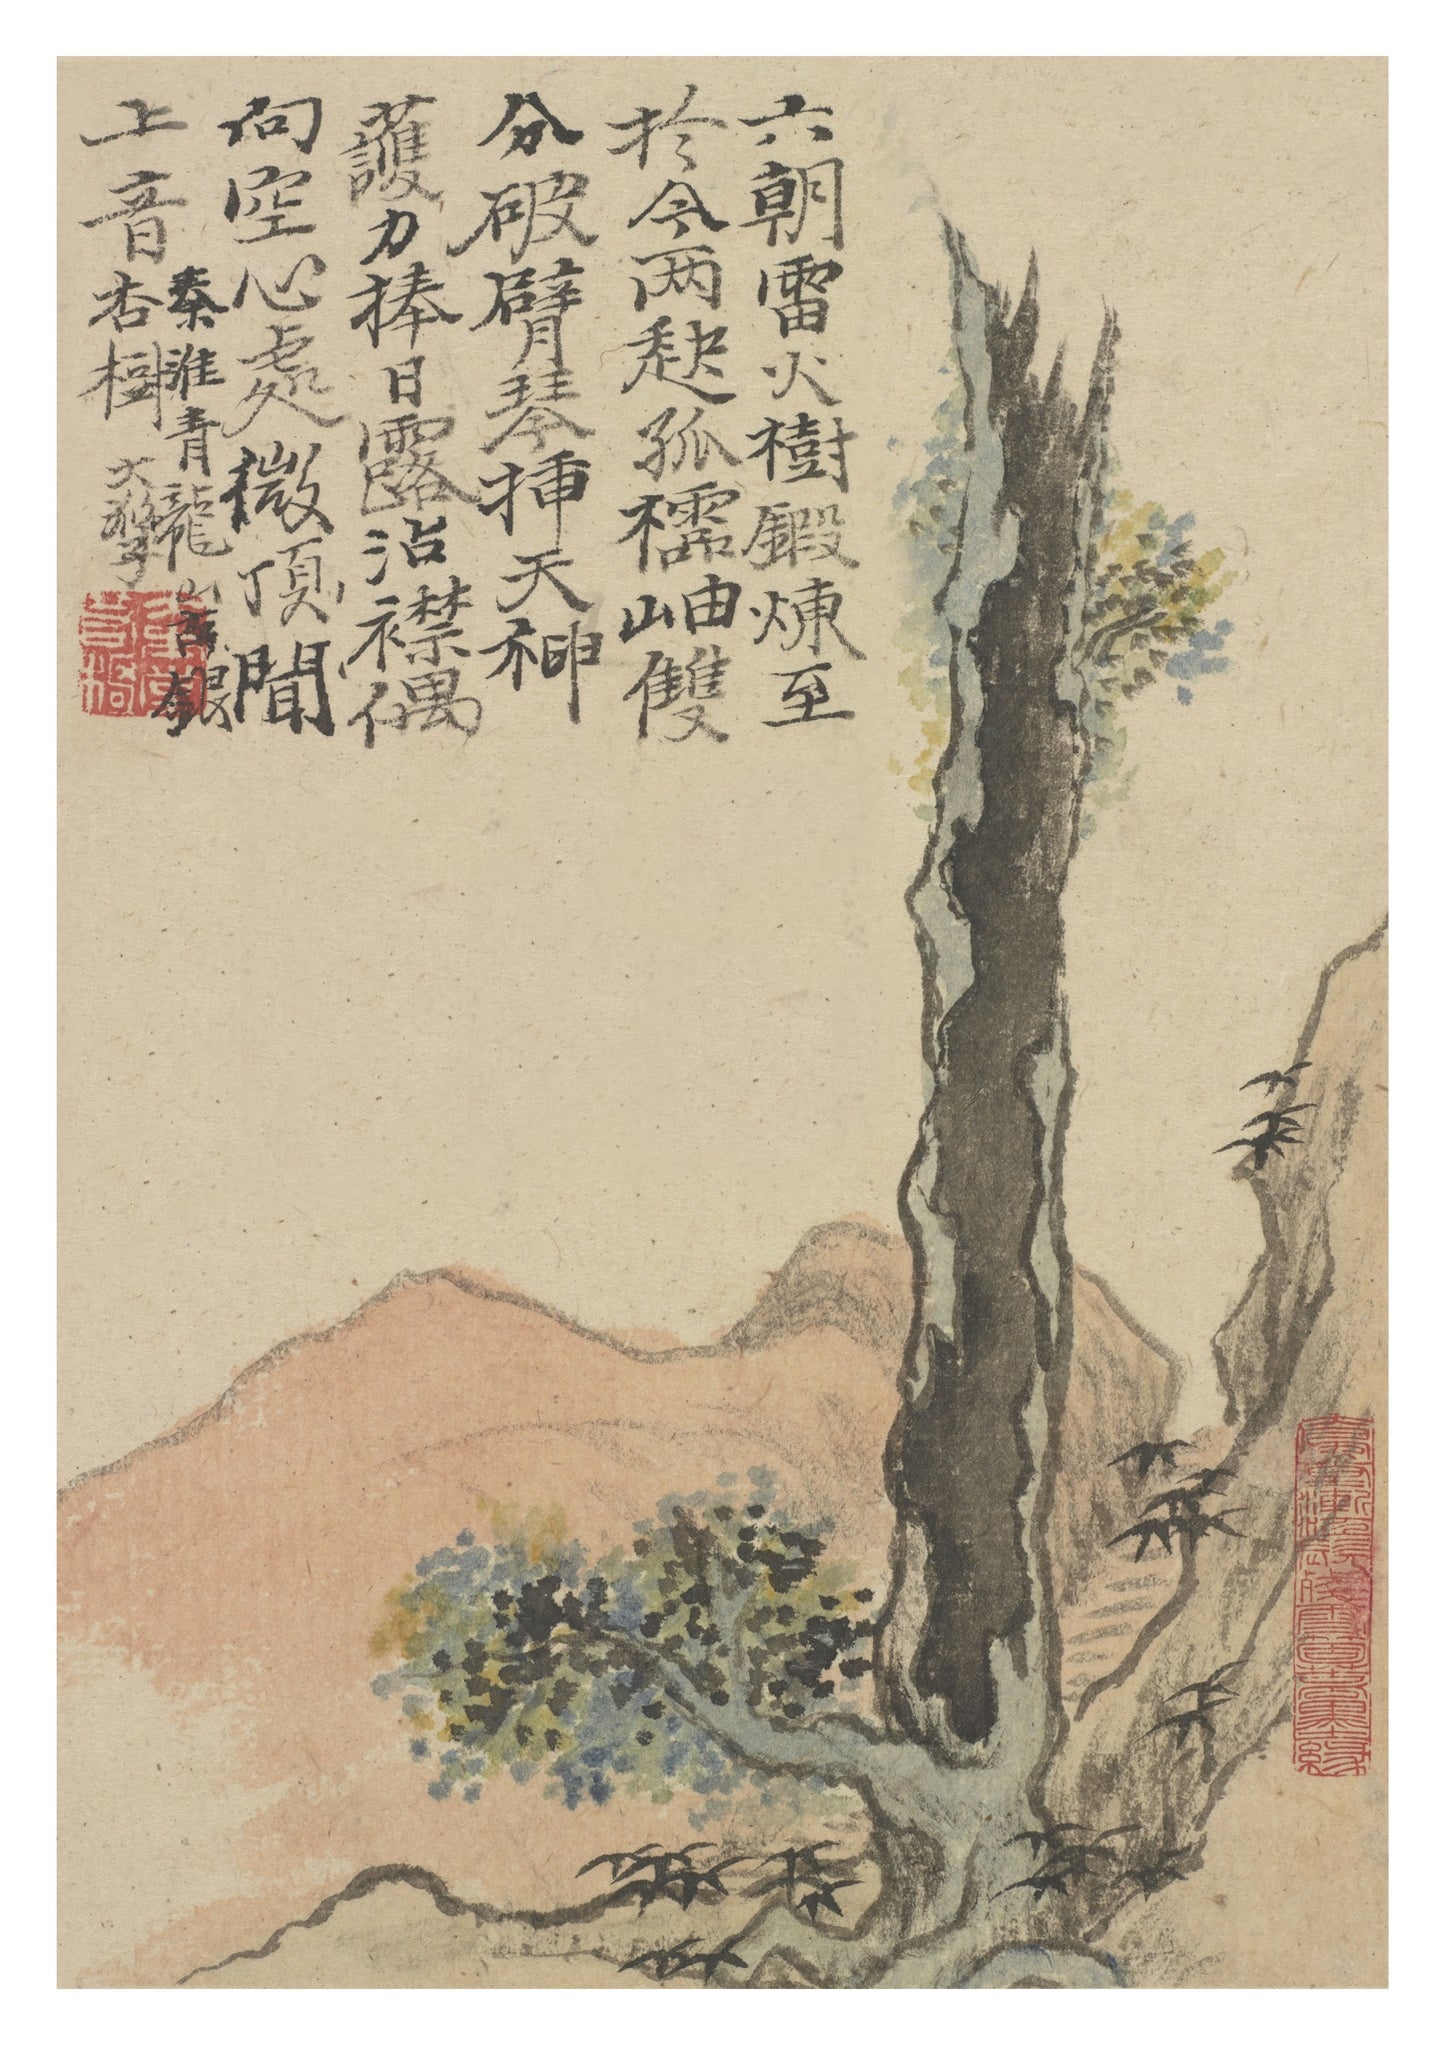 六朝雷火樹鍛煉至
於今兩𠡠孤檽岫雙
分破臂琴揷天神
護力捧日露沾襟偶
向空心處微頂聞
上音
秦淮青龍山古銀
杏樹
大滌子